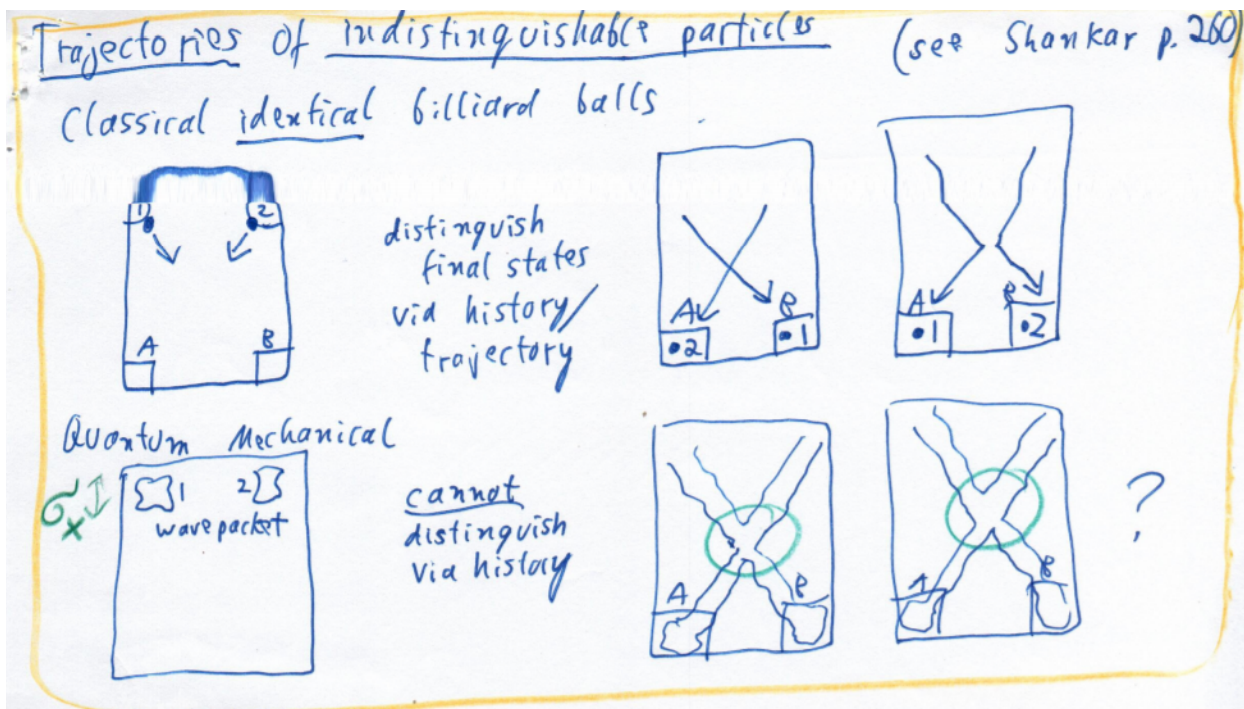 Trajectories of indistinguishable particles (see Shankar p. 260)
Classical identical billiard balls
1 2
A B
distinguish
final states
via history/
trajectory
A B
•2 •1
A B
•1 •2
Quantum Mechanical
σx
1 2
wave packet
cannot
distinguish
via history
A B
A B
?